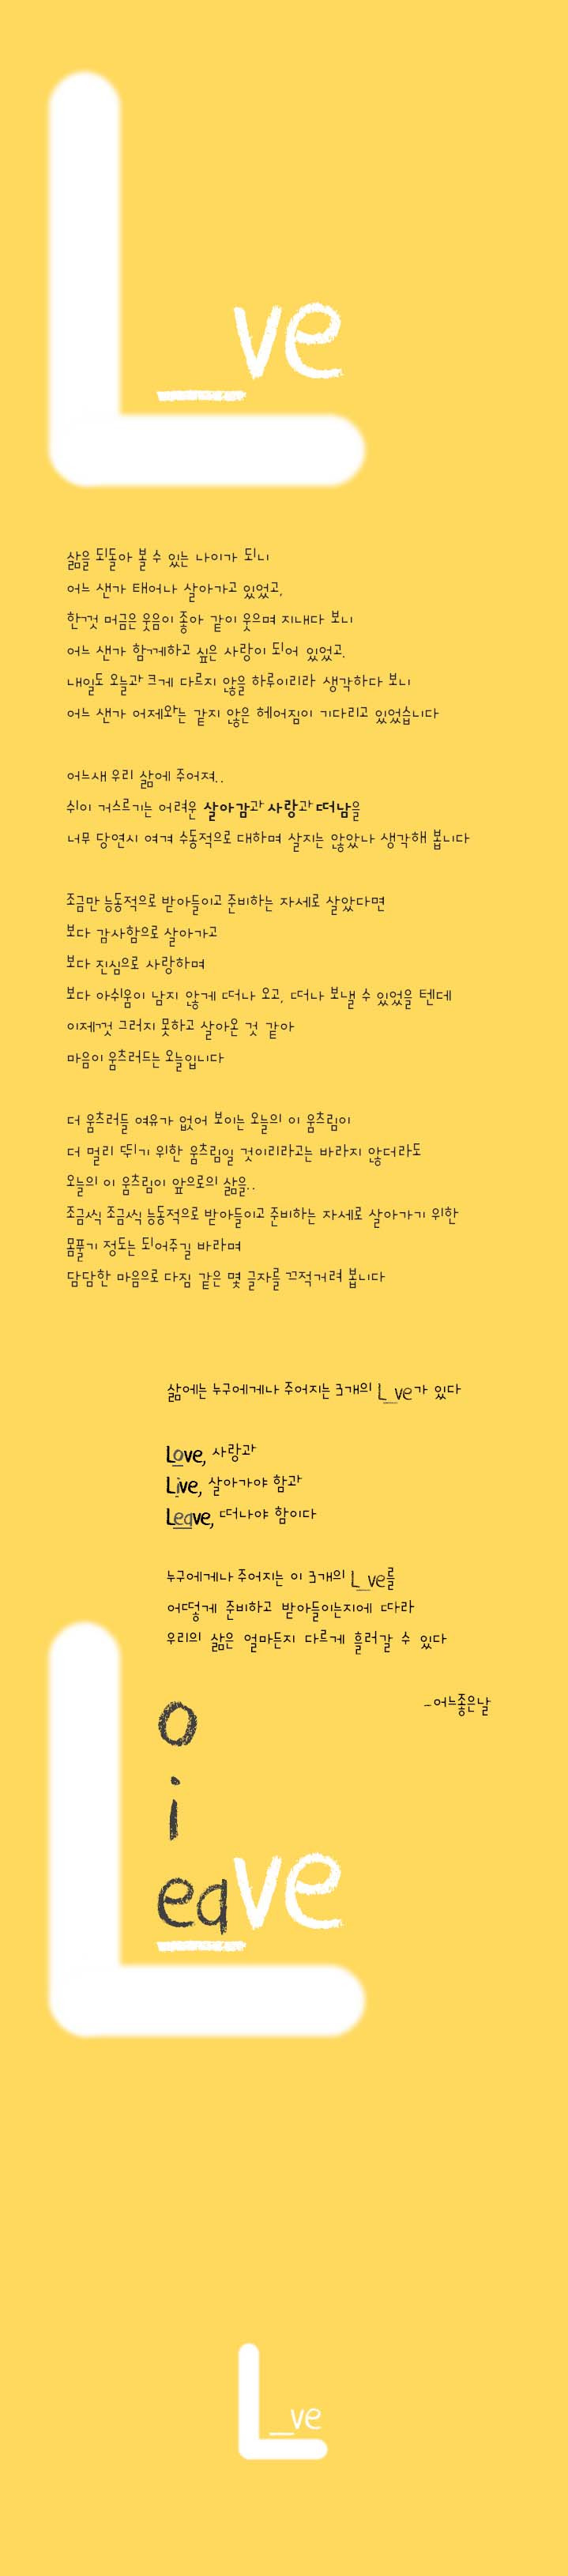 L_ve
삶을 되돌아 볼 수 있는 나이가 되니
어느 샌가 태어나 살아가고 있었고,
한껏 머금은 웃음이 좋아 같이 웃으며 지내다 보니
어느 샌가 함께하고 싶은 사랑이 되어 있었고,
내일도 오늘과 크게 다르지 않을 하루이리라 생각하다 보니
어느 샌가 어제와는 같지 않은 헤어짐이 기다리고 있었습니다
어느새 우리 삶에 주어져..
쉬이 거스르기는 어려운 살아감과 사랑과 떠남을
너무 당연시 여겨 수동적으로 대하며 살지는 않았나 생각해 봅니다
조금만 능동적으로 받아들이고 준비하는 자세로 살았다면
보다 감사함으로 살아가고
보다 진심으로 사랑하며
보다 아쉬움이 남지 않게 떠나 오고, 떠나 보낼 수 있었을 텐데
이제껏 그러지 못하고 살아온 것 같아
마음이 움츠러드는 오늘입니다
더 움츠러들 여유가 없어 보이는 오늘의 이 움츠림이
더 멀리 뛰기 위한 움츠림일 것이리라고는 바라지 않더라도
오늘의 이 움츠림이 앞으로의 삶을..
조금씩 조금씩 능동적으로 받아들이고 준비하는 자세로 살아가기 위한
몸풀기 정도는 되어주길 바라며
담담한 마음으로 다짐 같은 몇 글자를 끄적거려 봅니다
삶에는 누구에게나 주어지는 3개의 L_ve가 있다
Love, 사랑과
Live, 살아가야 함과
Leave, 떠나야 함이다
누구에게나 주어지는 이 3개의 L_ve를
어떻게 준비하고 받아들이는지에 따라
우리의 삶은 얼마든지 다르게 흘러갈 수 있다
-어느좋은날
o
i
L eave
L_ve